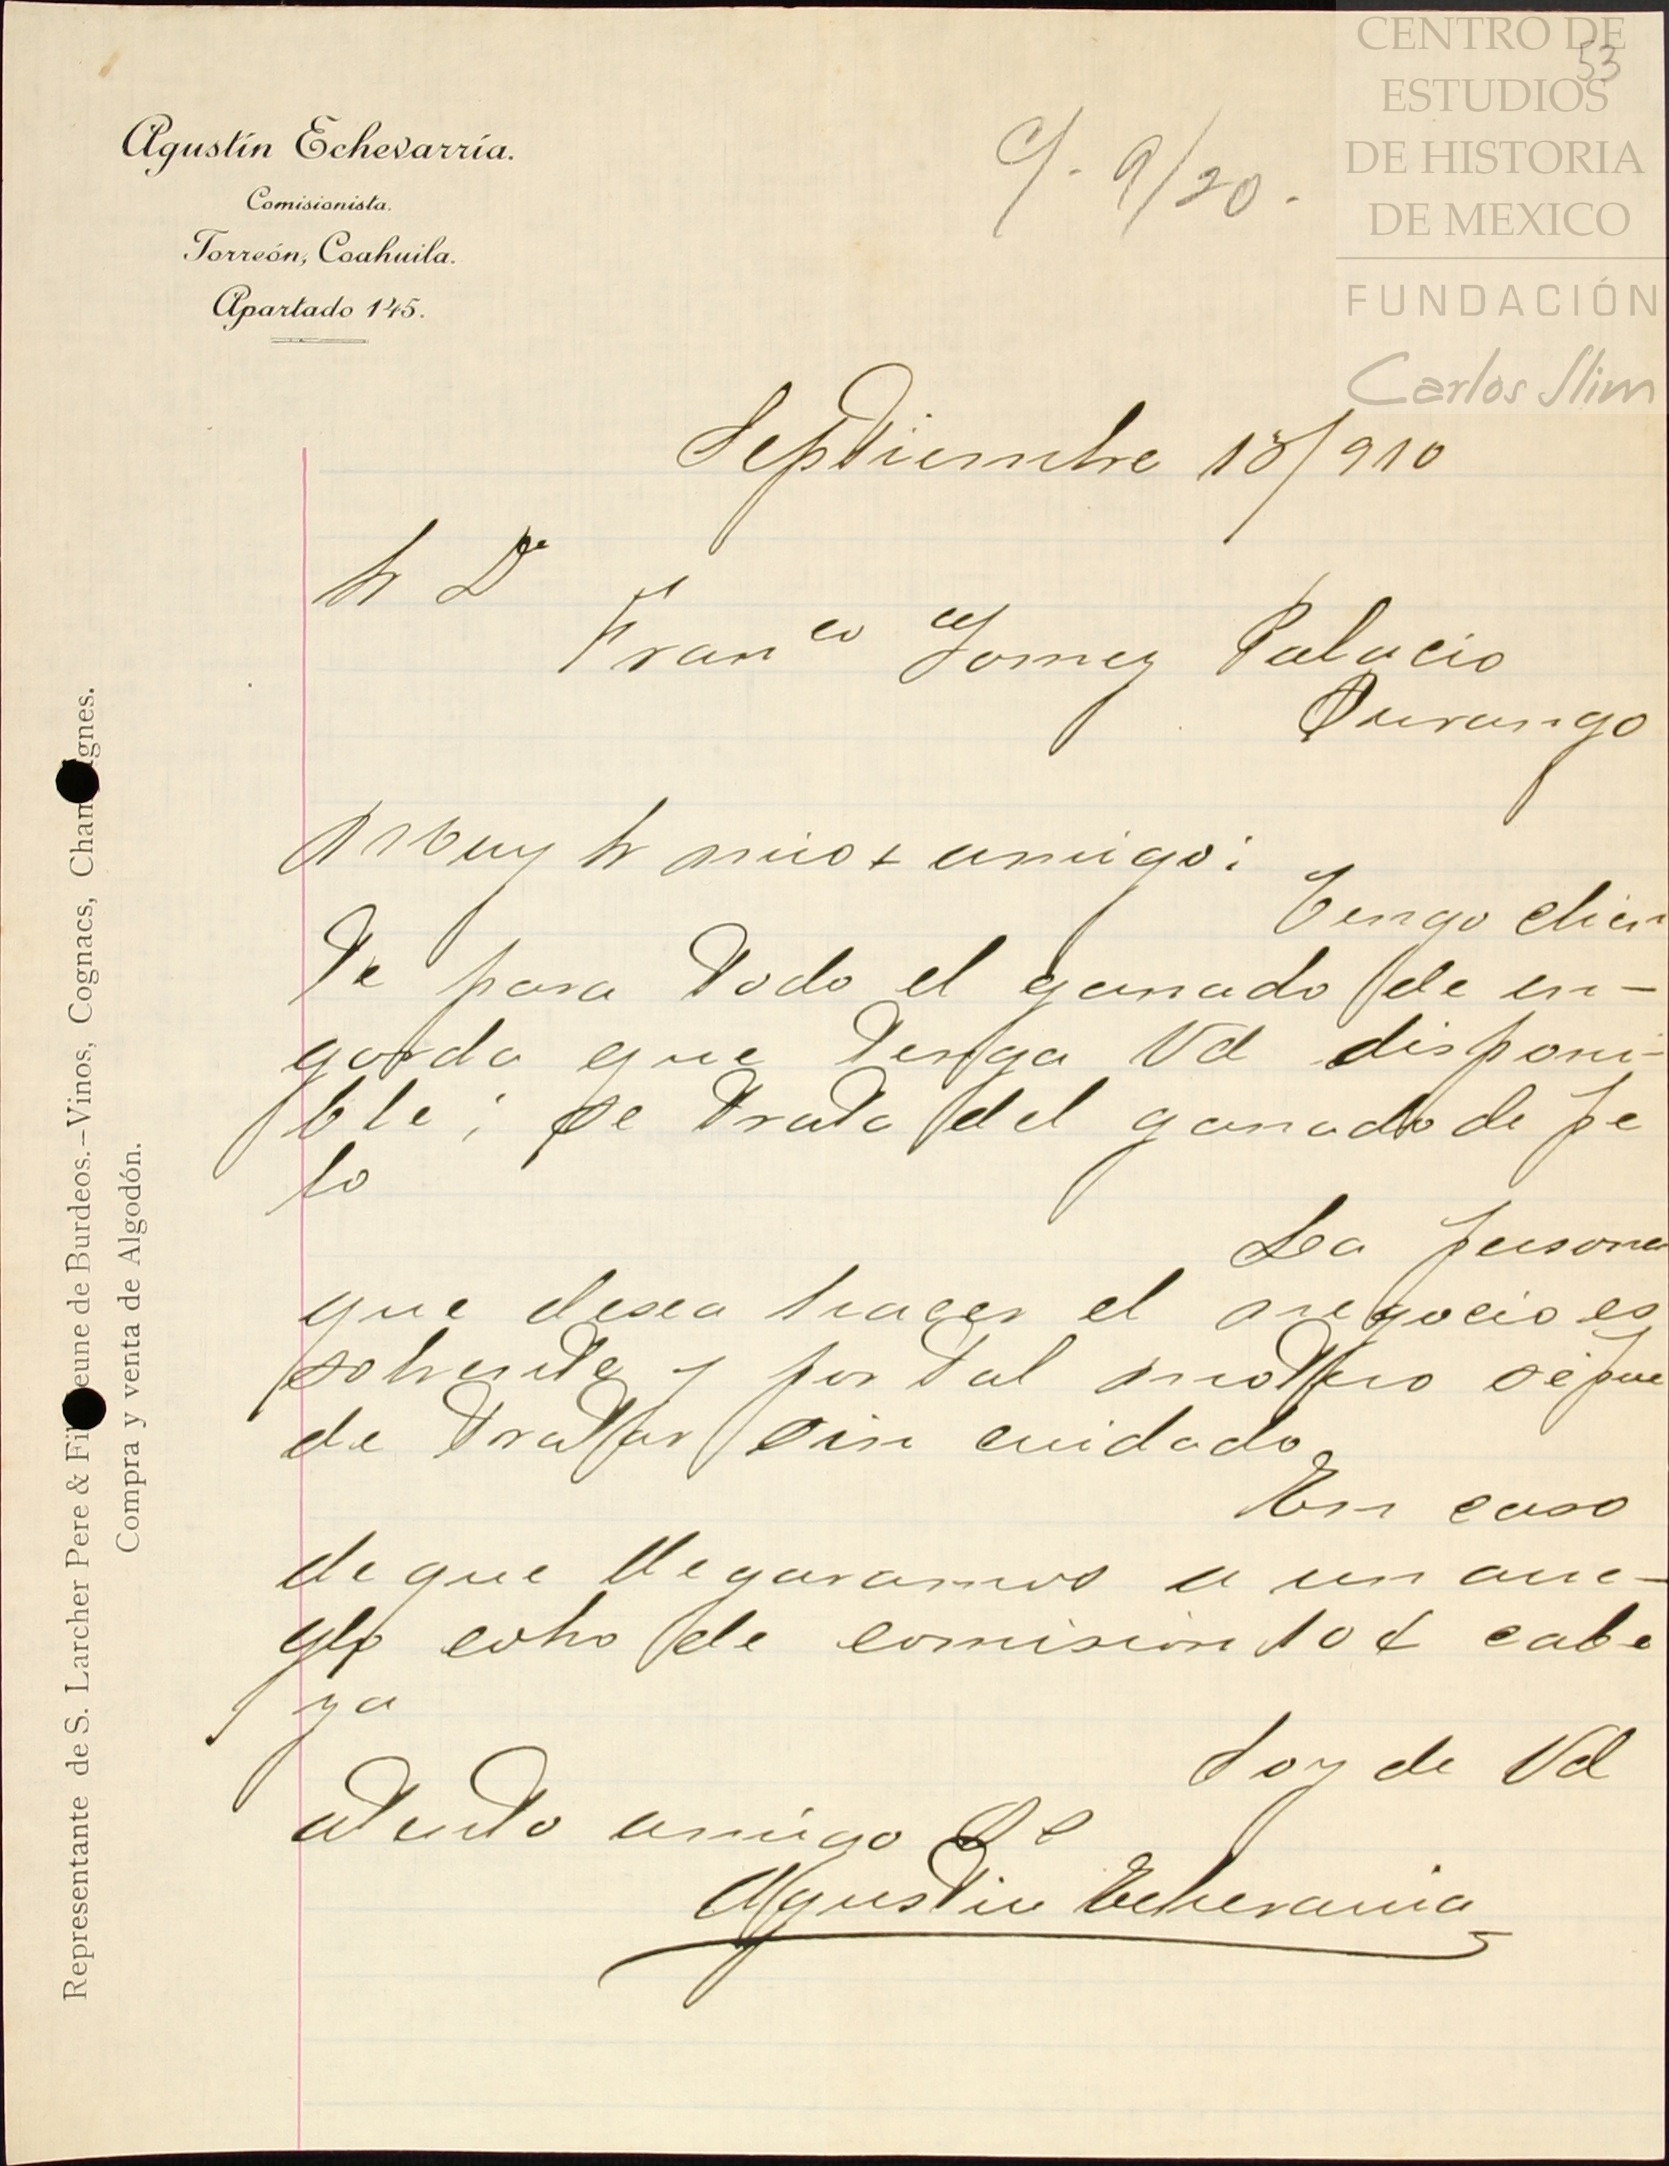 CENTRO DE
ESTUDIOS
DE HISTORIA
DE MEXICO
FUNDACIÓN
Carlos Slim
53
Agustín Echevarría.
Comisionista.
Torreón, Coahuila.
Apartado 145.
C/. 9/20.
Septiembre 18/910
Sr Dn
Franco Gomez Palacio
Durango
Muy Sr mio & amigo:
Tengo clien
te para todo el ganado de en-
gorda que tenga Vd disponi-
ble; se trata del ganado de pe
lo
La persona
que desea hacer el negocio es
solvente y por tal motivo se pue
de tratar sin cuidado
En caso
de que llegaramos a un arre-
glo cobro de comision 10 ¢ cabe
za
Soy de Vd
atento amigo
Agustin Echevarria
Representante de S. Larcher Pere & Fi eune de Burdeos.-Vinos, Cognacs, Cham gnes.
Compra y venta de Algodón.